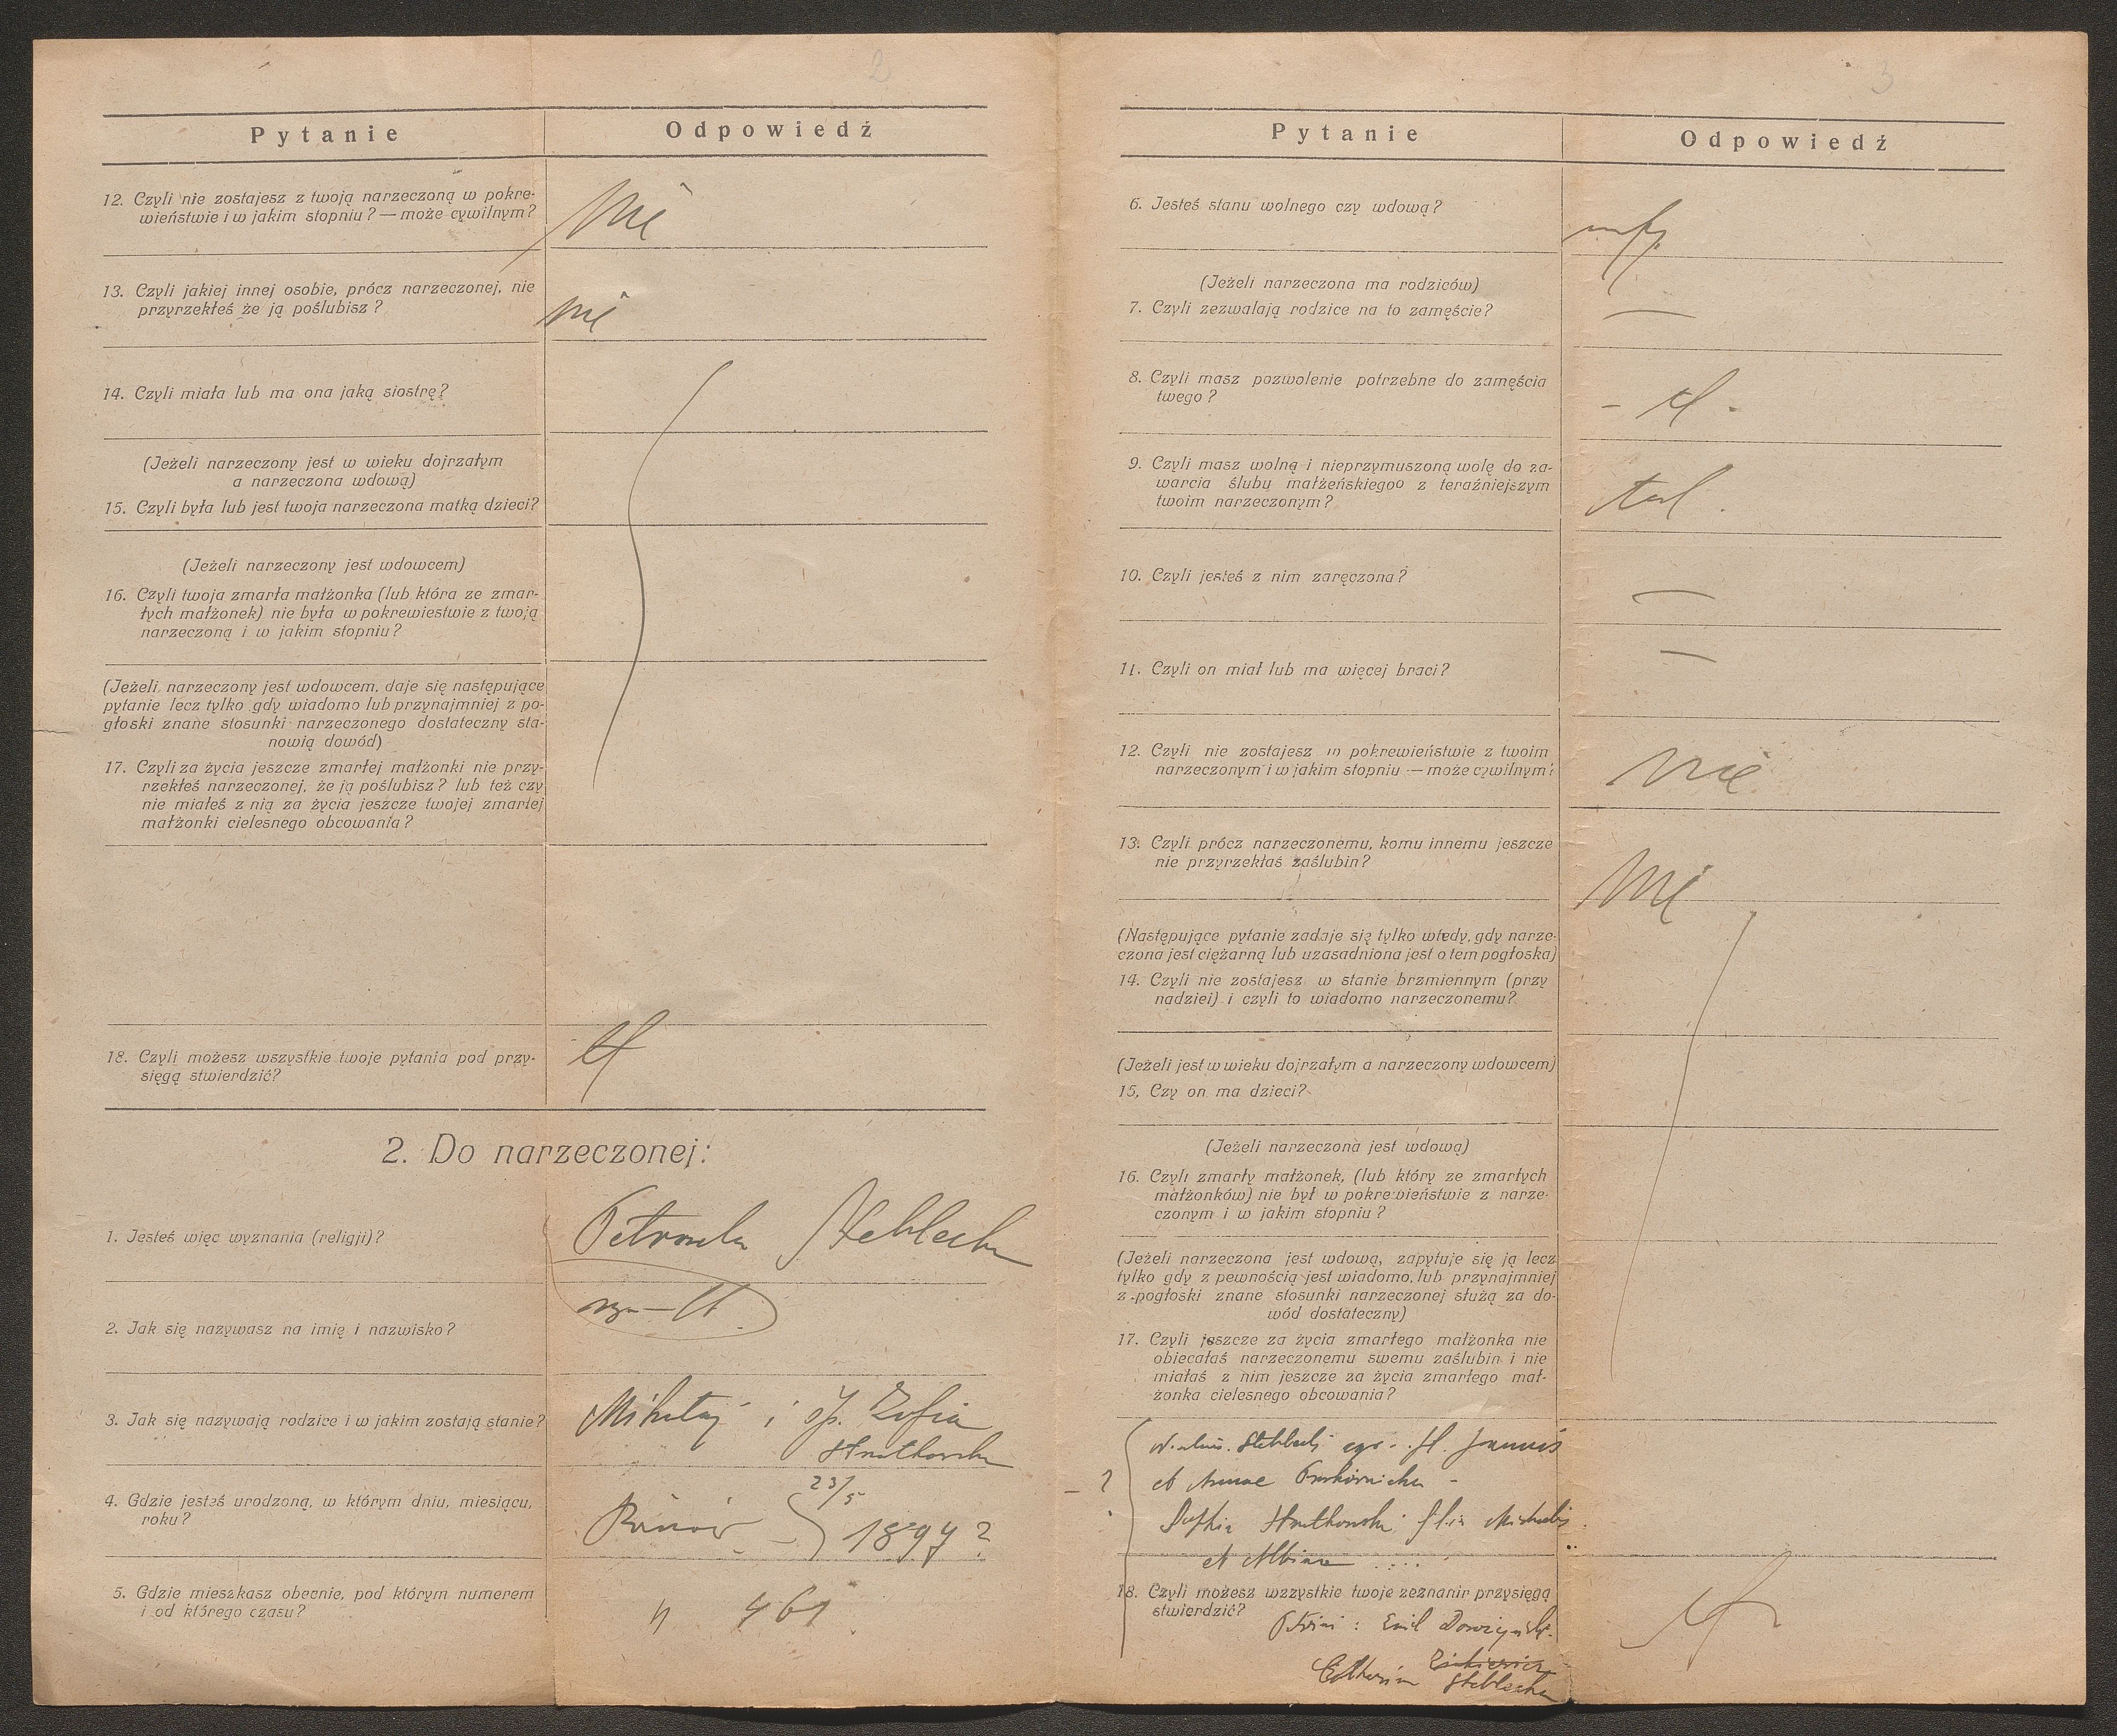 2
Pytanie
Odpowiedź
12. Czyli nie zostajesz z twoją narzeczoną w pokre-
wieństwie i w jakim stopniu? — może cywilnym?
nie
13. Czyli jakiej innej osobie, prócz narzeczonej, nie
przyrzekłeś że ją poślubisz?
nie
14. Czyli miała lub ma ona jaką siostrę?
(Jeżeli narzeczony jest w wieku dojrzałym
a narzeczona wdową)
15. Czyli była lub jest twoja narzeczona matką dzieci?
(Jeżeli narzeczony jest wdowcem)
16. Czyli twoja zmarła małżonka (lub która ze zmar-
łych małżonek) nie była w pokrewiestwie z twoją
narzeczoną i w jakim stopniu?
(Jeżeli narzeczony jest wdowcem, daje się następujące
pytanie lecz tylko gdy wiadomo lub przynajmniej z po-
głoski znane stosunki narzeczonego dostateczny sta-
nowią dowód)
17. Czyli za życia jeszcze zmarłej małżonki nie przy-
rzekłeś narzeczonej, że ją poślubisz? lub też czy
nie miałeś z nią za życia jeszcze twojej zmarłej
małżonki cielesnego obcowania?
18. Czyli możesz wszystkie twoje pytania pod przy-
sięgą stwierdzić?
2. Do narzeczonej:
1. Jesteś więc wyznania (religji)?
2. Jak się nazywasz na imię i nazwisko?
3. Jak się nazywają rodzice i w jakim zostają stanie?
Mikołaj i śp. Zofia
Hnatkowska
4. Gdzie jesteś urodzoną, w którym dniu, miesiącu,
roku?
23/5
1897?
5. Gdzie mieszkasz obecnie, pod którym numerem
i od którego czasu?
" 461
3
Pytanie
Odpowiedź
6. Jesteś stanu wolnego czy wdową?
(Jeżeli narzeczona ma rodziców)
7. Czyli zezwalają rodzice na to zamęście?
—
8. Czyli masz pozwolenie potrzebne do zamęścia
twego?
9. Czyli masz wolną i nieprzymuszoną wolę do za-
warcia śluby małżeńskiegoo z teraźniejszym
twoim narzeczonym?
tak
10. Czyli jesteś z nim zaręczona?
—
11. Czyli on miał lub ma więcej braci?
—
12. Czyli nie zostajesz w pokrewieństwie z twoim
narzeczonym i w jakim stopniu — może cywilnym?
nie
13. Czyli prócz narzeczonemu, komu innemu jeszcze
nie przyrzekłaś zaślubin?
nie
(Następujące pytanie zadaje się tylko wtedy, gdy narze-
czona jest ciężarną lub uzasadniona jest o tem pogłoska)
14. Czyli nie zostajesz w stanie brzmiennym (przy
nadziei) i czyli to wiadomo narzeczonemu?
(Jeżeli jest w wieku dojrzałym a narzeczony wdowcem)
15. Czy on ma dzieci?
(Jeżeli narzeczona jest wdową)
16. Czyli zmarły małżonek, (lub który ze zmarłych
małżonków) nie był w pokrewieństwie z narze-
czonym i w jakim stopniu?
(Jeżeli narzeczona jest wdową, zapytuje się ją lecz
tylko gdy z pewnością jest wiadomo, lub przynajmniej
z pogłoski znane stosunki narzeczonej służą za do-
wód dostateczny)
17. Czyli jeszcze za życia zmarłego małżonka nie
obiecałaś narzeczonemu swemu zaślubin i nie
miałaś z nim jeszcze za życia zmarłego mał-
żonka cielesnego obcowania?
fil. Joannis
et Annae
- ? Sophia Hnatkowska filia Michaelis
et Albinae
18. Czyli możesz wzzystkie twoje zeznanir przysięgą
stwierdzić?
Emil